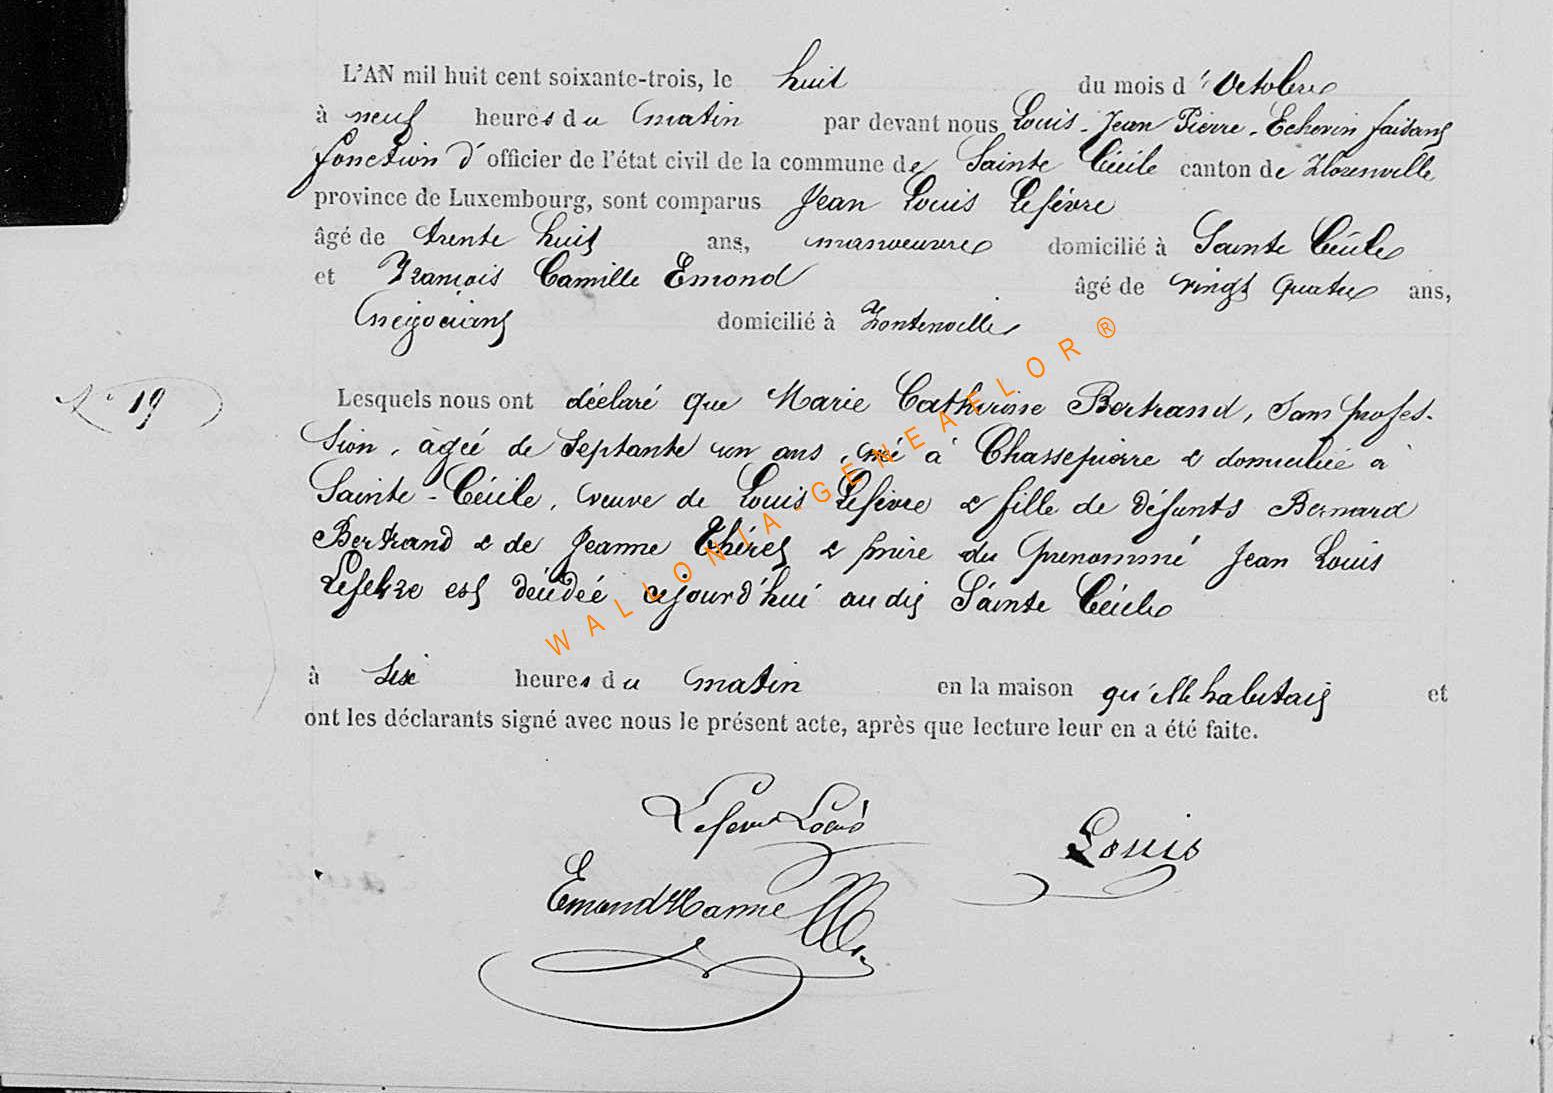 L'AN mil huit cent soixante-trois, le huit du mois d'Octobre
à neuf heures du matin par devant nous Louis Jean Pierre, Echevin faisant
fonction d'officier de l'état civil de la commune de Sainte Cécile canton de Florenville
province de Luxembourg, sont comparus Jean Louis Lefèvre
âgé de trente huit ans, manoeuvre domicilié à Sainte Cécile
et François Camille Emond âgé de vingt quatre ans,
négociant domicilié à Fontenoille
N° 19
Lesquels nous ont déclaré que Marie Catherine Bertrand, sans profes-
sion, âgée de septante un ans, né à Chassepierre & domiciliée à
Sainte-Cécile, veuve de Louis Lefèvre & fille de défunts Bernard
Bertrand & de Jeanne Thérès & mère du prénommé Jean Louis
Lefebvre est décédée cejourd'hui au dit Sainte Cécile
à six heures du matin en la maison qu'elle habitait et
ont les déclarants signé avec nous le présent acte, après que lecture leur en a été faite.
Lefevre Louis
Louis
Emond Hanne
WALLONIA-GENEAFLOR®